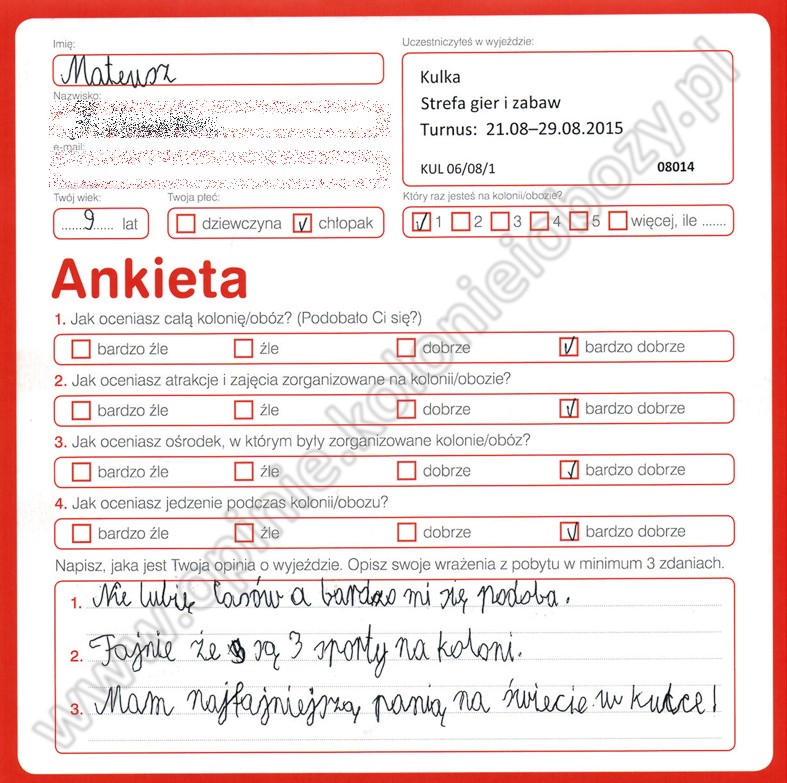 Imię:
Mateusz
Uczestniczyłeś w wyjeździe:
Kulka
Strefa gier i zabaw
Turnus: 21.08–29.08.2015
KUL 06/08/1 08014
Nazwisko:
e-mail:
Twój wiek:
9 lat
Twoja płeć:
dziewczyna chłopak
Który raz jesteś na kolonii/obozie?
1 2 3 4 5 więcej, ile .......
Ankieta
1. Jak oceniasz całą kolonię/obóz? (Podobało Ci się?)
bardzo źle źle dobrze bardzo dobrze
2. Jak oceniasz atrakcje i zajęcia zorganizowane na kolonii/obozie?
bardzo źle źle dobrze bardzo dobrze
3. Jak oceniasz ośrodek, w którym były zorganizowane kolonie/obóz?
bardzo źle źle dobrze bardzo dobrze
4. Jak oceniasz jedzenie podczas kolonii/obozu?
bardzo źle źle dobrze bardzo dobrze
Napisz, jaka jest Twoja opinia o wyjeździe. Opisz swoje wrażenia z pobytu w minimum 3 zdaniach.
1. Nie lubię lasów a bardzo mi się podoba.
2. Fajnie że są 3 sporty na koloni.
3. Mam najfajniejszą panią na świecie w kulce!
www.opinie.kolonieiobozy.pl